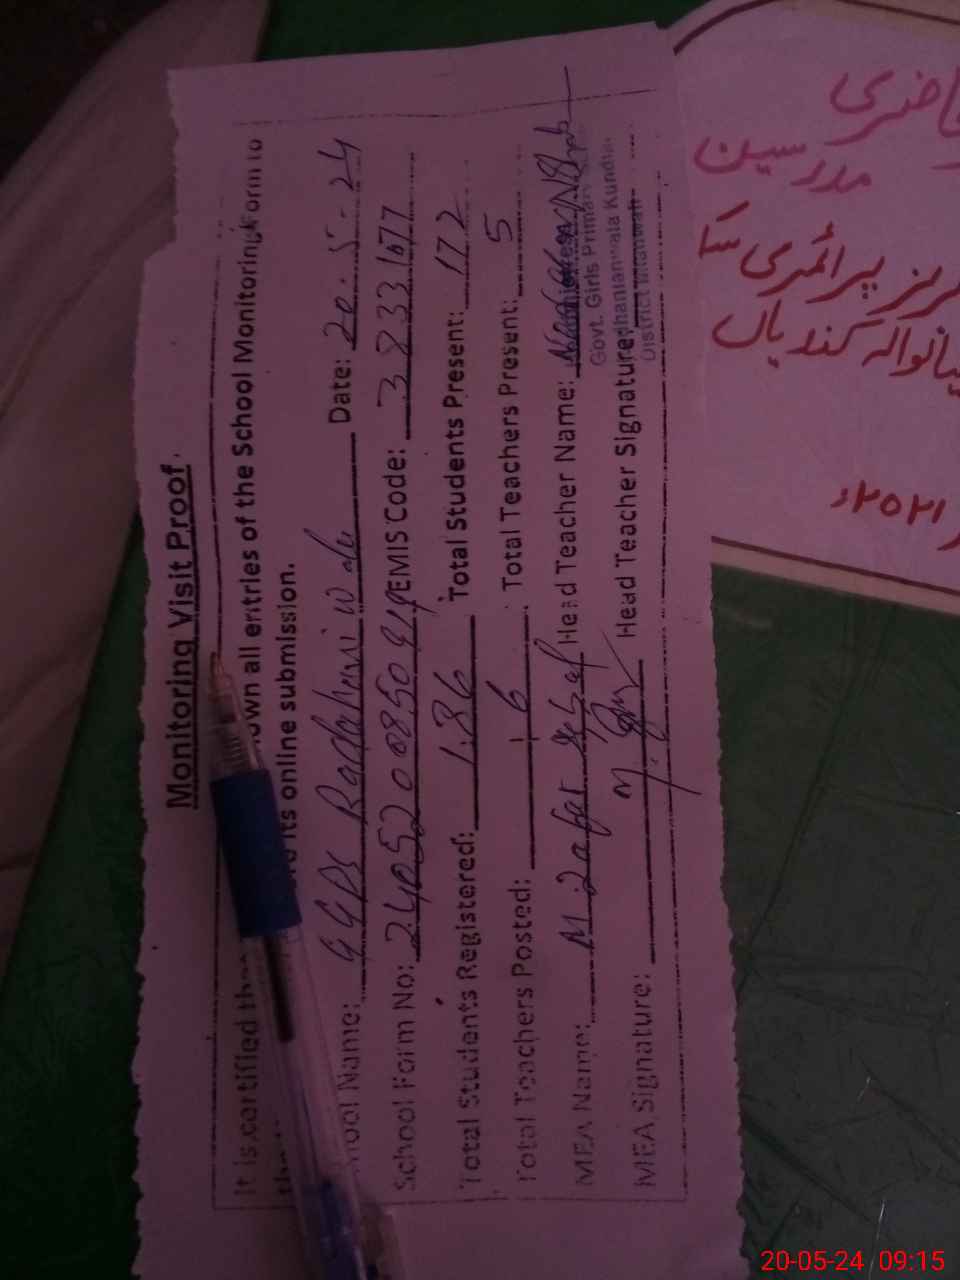 Monitoring Visit Proof.
It is certified tha own all entries of the School Monitoring Form to
its online submission.
hool Name: GGPS Date: 20-5-24
School Form No: EMIS Code: 3 8 3 3 1677
Total Students Registered: 186 Total Students Present: 172
Total Teachers Posted: 6 Total Teachers Present: 5
MEA Name: M Zafar Head Teacher Name:
Govt. Girls Primar
MEA Signature: Head Teacher Signature: hanianwala Kundian
District Mianwali
حاضری
مدرسین
پرائمری
کندیاں
۲۰۲۱ء
20-05-24 09:15